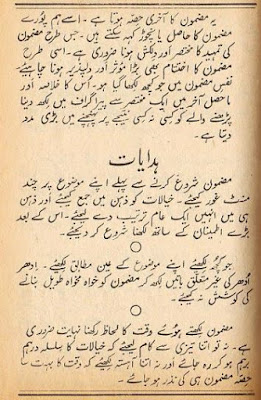 یہ مضمون کا آخری حصّہ ہوتا ہے۔ اسے ہم پورے
مضمون کا حاصل یا نچوڑ کہہ سکتے ہیں۔ جس طرح مضمون
کی تمہید کا مختصر اور دلکش ہونا ضروری ہے۔ اسی طرح
مضمون کا اختتام بھی بڑا مؤثر اور دلپذیر ہونا چاہیئے۔
نفسِ مضمون میں جو کچھ لکھا گیا ہو۔ اُس کا خلاصہ اور
ماحصل آخر میں ایک مختصر سے پیراگراف میں لکھ دینا
پڑھنے والے کو کسی نہ کسی نتیجے پر پہنچنے میں بڑی مدد
دیتا ہے۔
ہدایات
مضمون شروع کرنے سے پہلے اپنے موضوع پر چند
منٹ غور کیجئے۔ خیالات کو ذہن میں جمع کیجئے اور ذہن
ہی میں انہیں ایک عام ترتیب دے لیجئے۔ اس کے بعد
بڑے اطمینان کے ساتھ لکھنا شروع کر دیجئے۔
جو کچھ لکھئے اپنے موضوع کے عین مطابق لکھئے۔ اِدھر
اُدھر کی غیر متعلق باتیں لکھ کر مضمون کو خواہ مخواہ طویل بنانے
کی کوشش نہ کیجئے۔
مضمون لکھتے ہوئے وقت کا لحاظ رکھنا نہایت ضروری
ہے۔ نہ تو اتنا تیزی سے کام لیجئے کہ خیالات کا سلسلہ درہم
برہم ہو کر رہ جائے اور نہ اتنا آہستہ لکھئے کہ وقت کا بہت سا
حصّہ مضمون ہی کی نذر ہو جائے۔